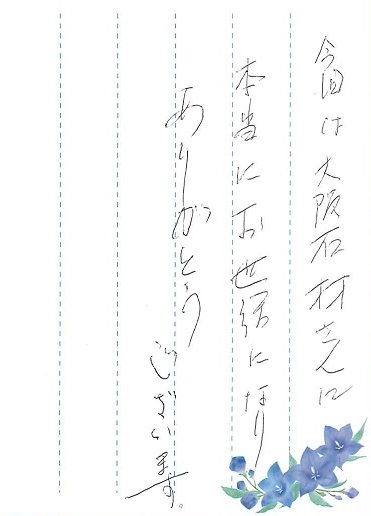 今回は大阪石材さんに
本当にお世話になり
ありがとう
ございます。